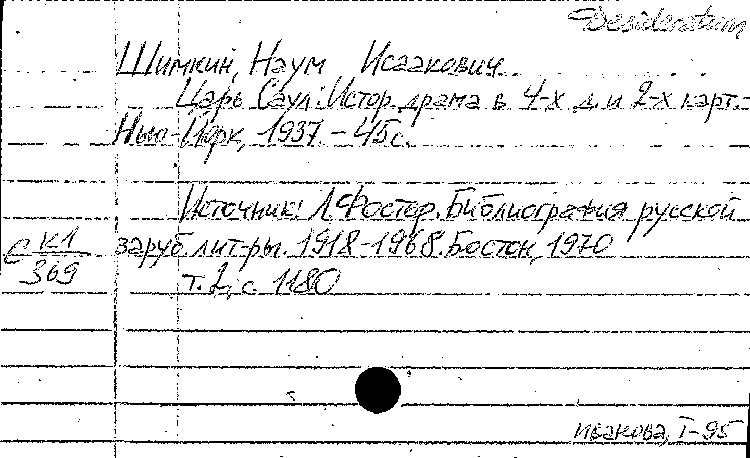 Desideratum
Шимкин, Наум Исаакович.
Царь Саул: Истор. драма в 4-х д. и 2-х карт.-
Нью-Йорк, 1937. - 45 с.
Источник: Л. Фостер. Библиография русской
С К1/369 заруб. лит-ры. 1918-1968. Бостон, 1970
т. 2, с. 1180
Ивакова, I-95